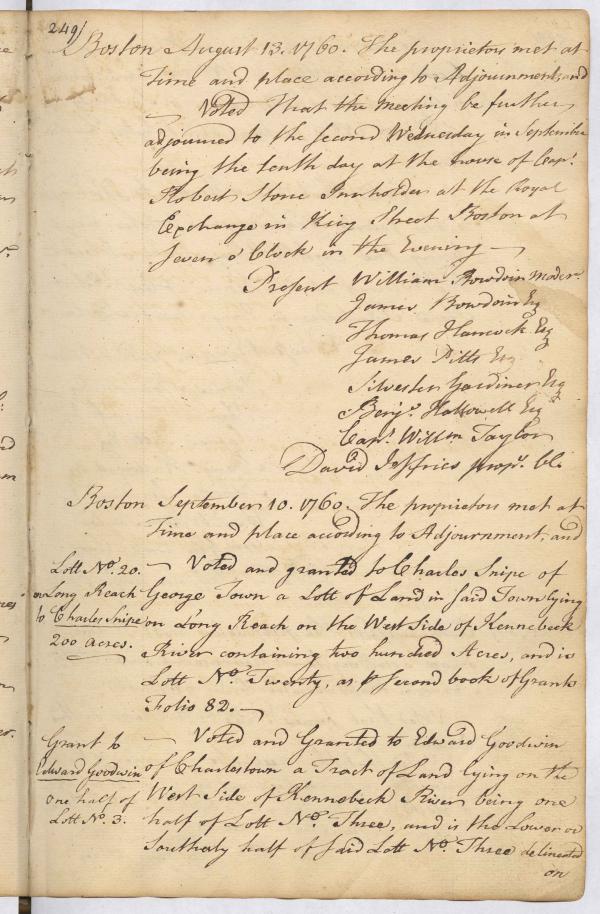 249/
Boston August 13. 1760. The proprietors met at
Time and place according to Adjournment, and
— Voted That the meeting be further
adjourned to the second Wednesday in September
being the tenth day at the house of Capt.
Robert Stone Innholder at the Royal
Exchange in King Street Boston at
seven o'Clock in the Evening —
Present William Bowdoin Moder.
James Bowdoin Esq
Thomas Hancock Esq
James Pitts Esq
Silvester Gardiner Esq
Benj. Hallowell Esq
Capt. Willm Taylor
David Jeffries propr. Cl.
Boston September 10. 1760. The proprietors met at
Time and place according to Adjournment, and
Lott No. 20.
on Long Reach
to Charles Snipe
200 Acres.
— Voted and granted to Charles Snipe of
George Town a Lott of Land in said Town lying
on Long Reach on the West Side of Kennebeck
River containing two hundred Acres, and is
Lott No. Twenty, as ⅌ Second book of Grants
Folio 82. —
Grant to
Edward Goodwin
one half of
Lott No. 3.
— Voted and Granted to Edward Goodwin
of Charlestown a Tract of Land lying on the
West Side of Kennebeck River being one
half of Lott No. Three, and is the Lower or
Southerly half of said Lott No. Three delineated
on